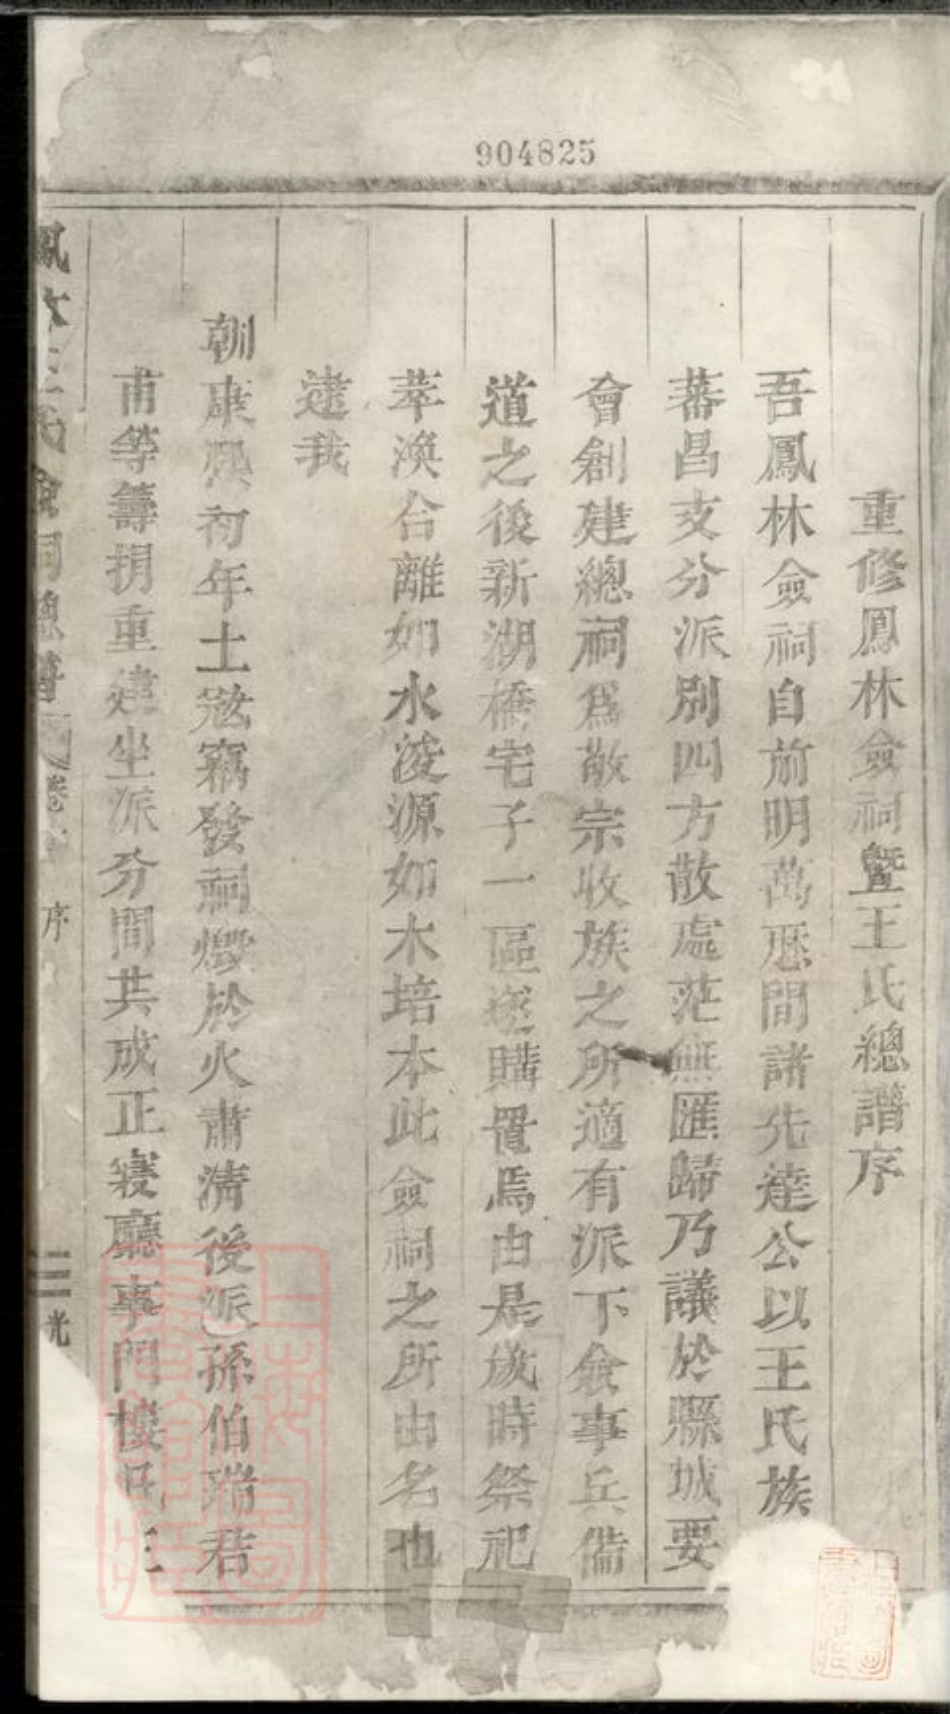 904825
重修鳳林僉祠曁王氏總譜序
吾鳳林僉祠自前明萬厯間諸先達公以王氏族
蕃昌支分派別四方散處茫無匯歸乃議於縣城要
會創建總祠爲敬宗收族之所適有派下僉事兵備
道之後新湖橋宅子一區遂購置焉由是歲時祭祀
萃渙合離如水浚源如木培本此僉祠之所由名也
逮我
朝康熙初年土寇竊發祠燬於火肅清後派孫伯瑞君
甫等籌捐重建坐派分間共成正寢廳事門樓
鳳林王氏僉祠總譜 卷 序 三 光